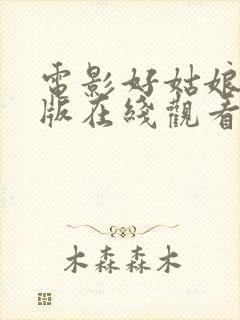 電影好姑娘
版在綫觀看
木森森木